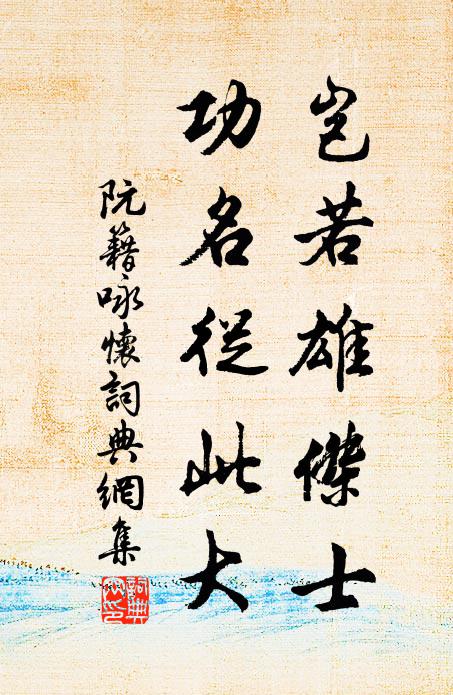 豈若雄傑士
功名從此大
阮籍咏懷詞典網集